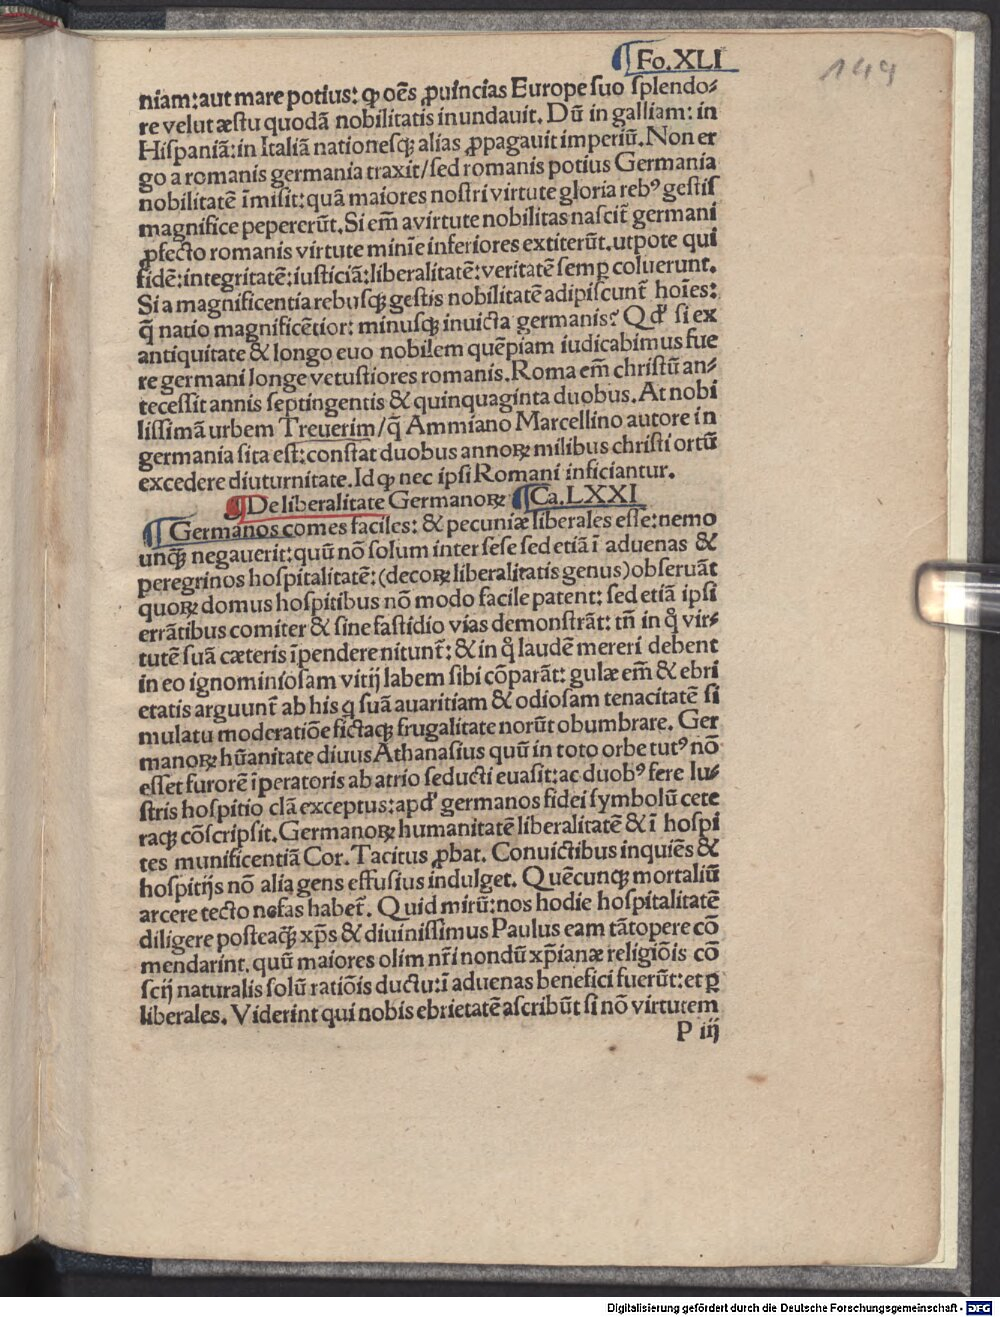 ¶Fo.XLI
149
niam:aut mare potius: ꝙ oēs ꝓuincias Europe suo splendo⸗
re velut æstu quodā nobilitatis inundauit. Dū in galliam: in
Hispaniā:in Italiā nationesqꝫ alias ꝓpagauit imperiū. Non er
go a romanis germania traxit/sed romanis potius Germania
nobilitatē īmisit:quā maiores nostri virtute gloria rebꝰ gestis
magnifice pepererūt. Si em̄ a virtute nobilitas nascit̄ germani
ꝓfecto romanis virtute minīe inferiores extiterūt. utpote qui
fidē:integritatē:iusticiā:liberalitatē:veritatē semꝑ coluerunt.
Si a magnificentia rebusqꝫ gestis nobilitatē adipiscunt̄ hoīes:
q̄ natio magnificētior: minusqꝫ inuicta germanis? Qđ si ex
antiquitate & longo euo nobilem quēpiam iudicabimus fue
re germani longe vetustiores romanis. Roma em̄ christū an⸗
tecessit annis septingentis & quinquaginta duobus. At nobi
lissimā urbem Treuerim/q̄ Ammiano Marcellino autore in
germania sita est:constat duobus annoꝝ milibus christi ortū
excedere diuturnitate. Id ꝙ nec ipsi Romani inficiantur.
¶De liberalitate Germanoꝝ ¶Ca. LXXI
¶Germanos comes faciles: & pecuniæ liberales esse:nemo
unqꝫ negauerit:quū nō solum inter sese sed etiā ī aduenas &
peregrinos hospitalitatē:(decoꝝ liberalitatis genus)obseruāt
quoꝝ domus hospitibus nō modo facile patent: sed etiā ipsi
errātibus comiter & sine fastidio vias demonstrāt: tn̄ in q̊ vir⸗
tutē suā cæteris īpendere nitunt̄: & in q̊ laudē mereri debent
in eo ignominiosam vitij labem sibi cōparāt: gulæ em̄ & ebri
etatis arguunt̄ ab his q suā auaritiam & odiosam tenacitatē si
mulatu moderatiōe fictaqꝫ frugalitate norūt obumbrare. Ger
manoꝝ hūanitate diuus Athanasius quū in toto orbe tutꝰ nō
esset furorē īperatoris ab atrio seducti euasit:ac duobꝰ fere lu⸗
stris hospitio clā exceptus:apđ germanos fidei symbolū cete
raqꝫ cōscripsit. Germanoꝝ humanitatē liberalitatē & ī hospi
tes munificentiā Cor. Tacitus ꝓbat. Conuictibus inquiēs &
hospitijs nō alia gens effusius indulget. Quēcunqꝫ mortaliū
arcere tecto nefas habet̄. Quid mirū:nos hodie hospitalitatē
diligere posteaqꝫ xp̄s & diuinissimus Paulus eam tātopere cō
mendarint. quū maiores olim nr̄i nondū xp̄ianæ religiōis cō
scij naturalis solū ratiōis ductu:ī aduenas benefici fuerūt: et ꝑ
liberales. Viderint qui nobis ebrietatē ascribūt si nō virtutem
P iij
Digitalisierung gefördert durch die Deutsche Forschungsgemeinschaft - DFG